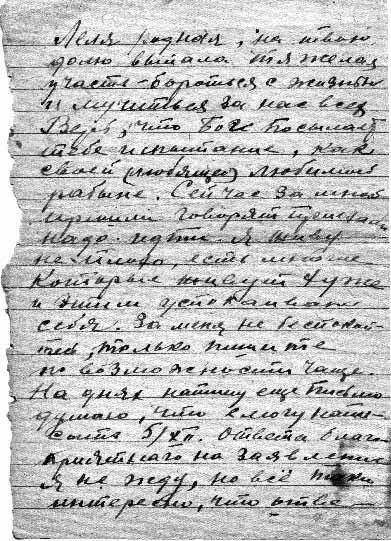 Леля родная, на твою
долю выпала тяжелая
участь - бороться с жизнью
и мучиться за нас всех
Верь, что Бог посылает
тебе испытание, как
своей (любящей) любимой
рабыне. Сейчас за мной
пришли говорят приехали
надо идти. Я живу
не плохо, есть многие
которые живут хуже
и этим успокаиваю
себя. За меня не беспокой-
тесь, только пишите
по возможности чаще.
На днях напишу еще письмо
думаю, что смогу напи-
сать 5/XII. Ответа благо-
приятного на заявление
Я не жду, но всё таки
интересно, что отве-